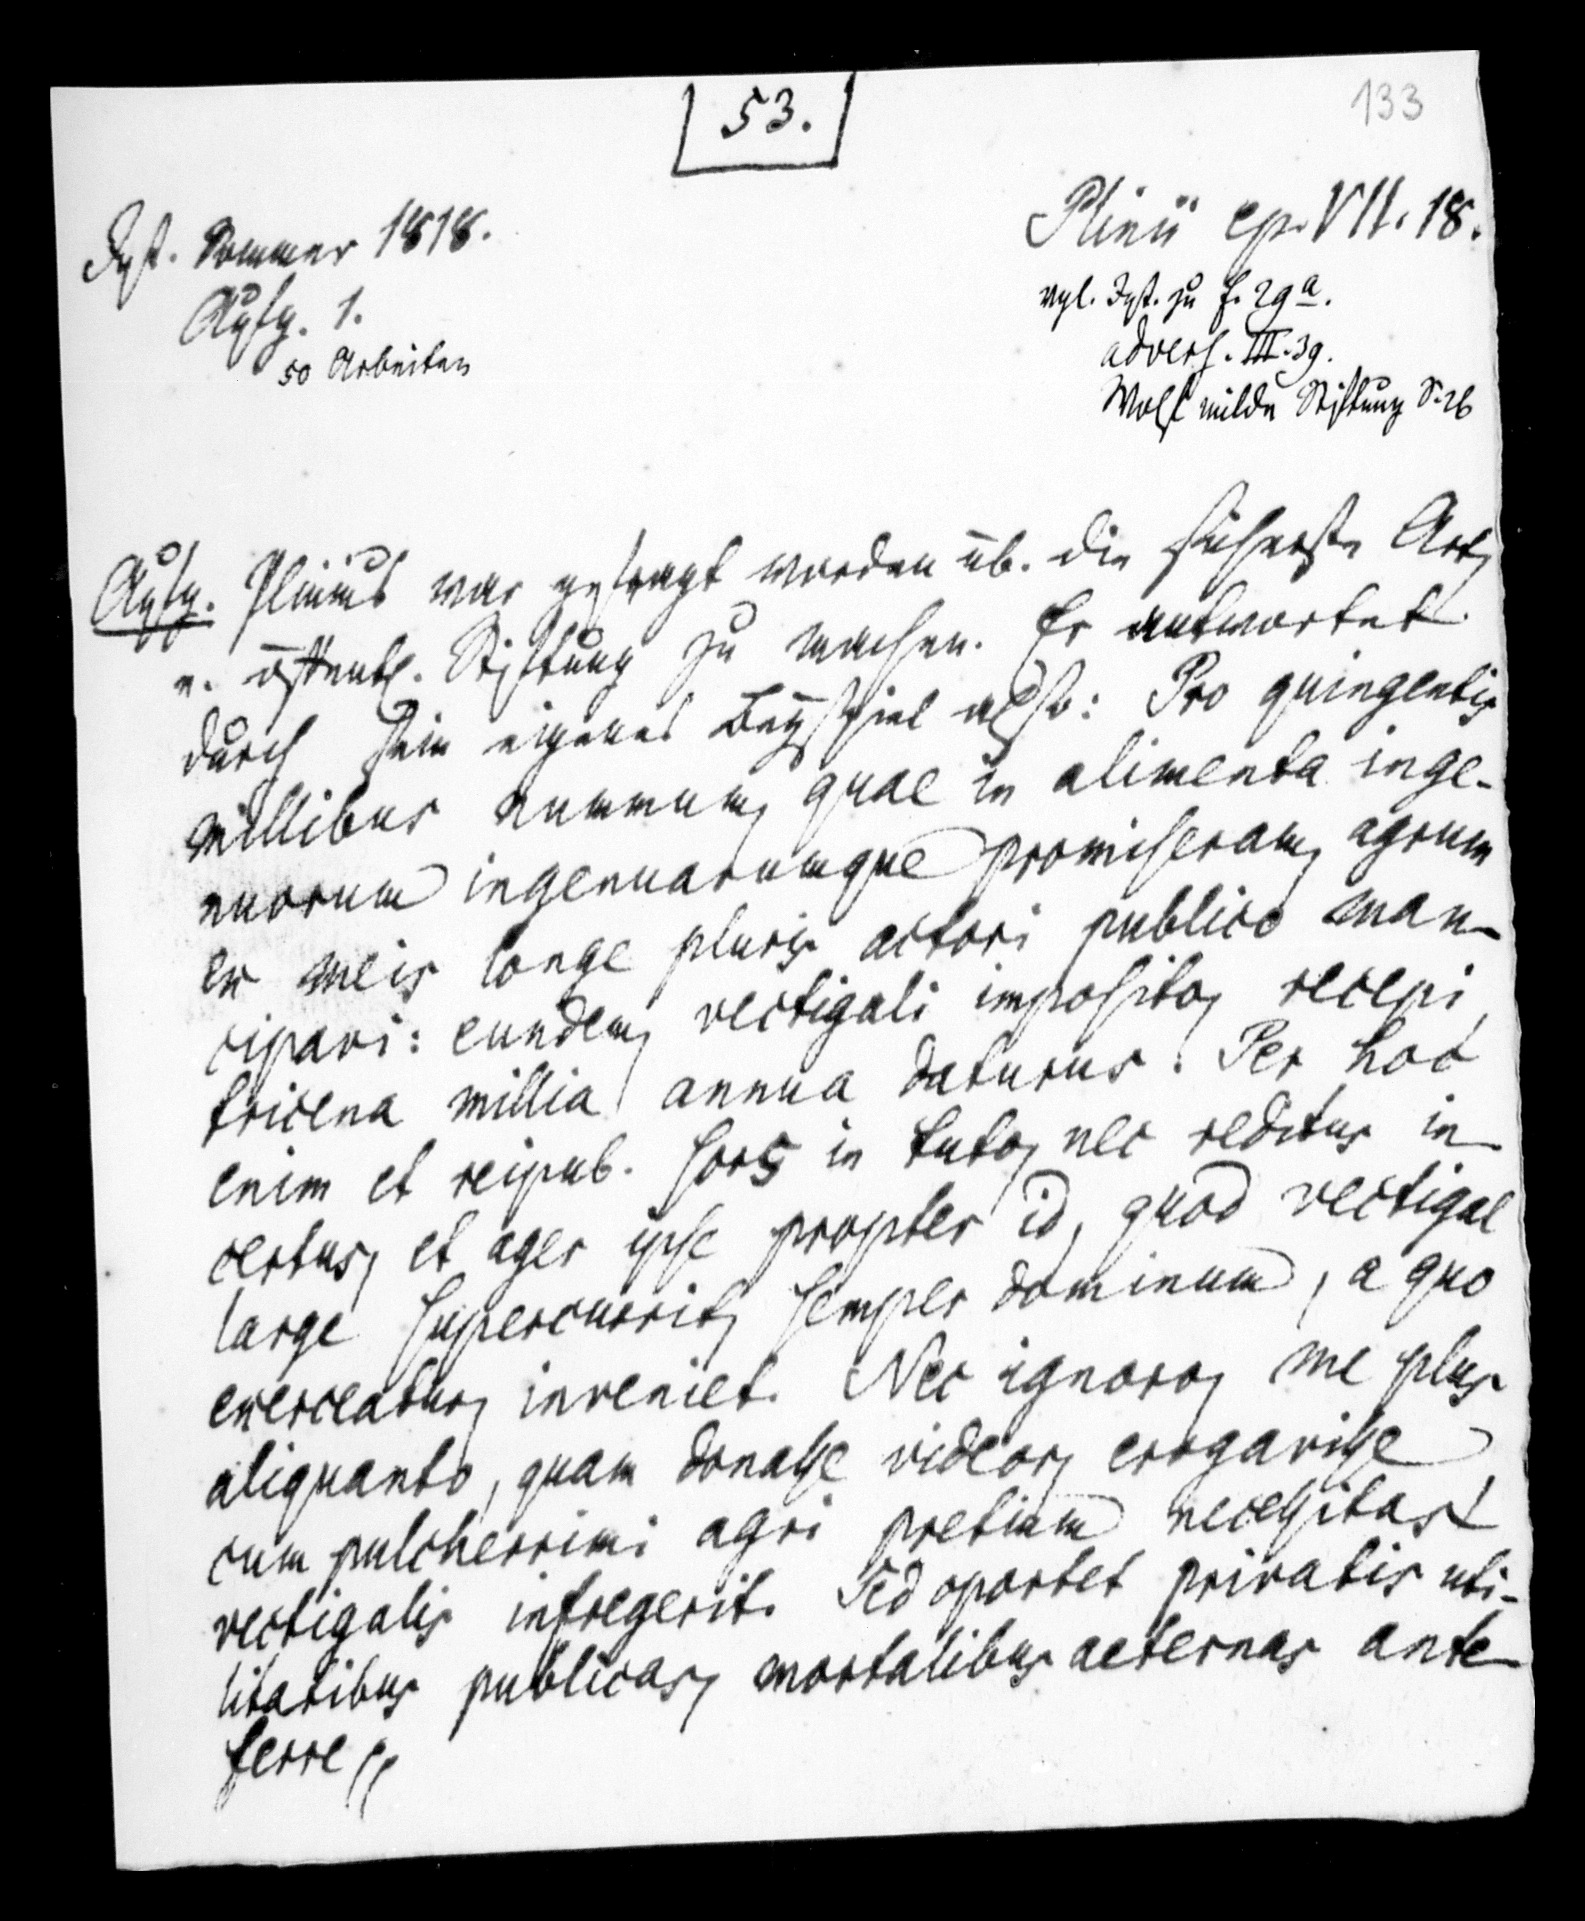 53.
133
Inst. Sommer 1818.
Aufg. 1.
50 Arbeiten
Plinii ep. VII. 18.
vgl. Inst. zu f. 29 a.
advers. III. 39.
Wolf milde Stiftung S. 26
Aufg. Plinius war gefragt worden üb. die sicherste Art,
e. öffentl. Stiftung zu machen. Er antwortet
durch sein eigenes Beyspiel also: Pro quingentis
millibus nummum, quae in alimenta inge-
nuorum ingenuarumque promiseram, agrum
ex meis longe pluris actori publico man-
cipavi: eundem, vectigali imposito, recepi,
tricena millia annua daturus. Per hoc
enim et reipub. sors in tuto, nec reditus in-
certus, et ager ipse propter id, quod vectigal
large supercurrit, semper dominum, a quo
exerceatur, inveniet. Nec ignoro, me plus
aliquanto, quam donasse videor, erogavisse,
cum pulcherrimi agri pretium necessitas
vectigalis infregerit. Sed oportet privatis uti-
litatibus publicas, mortalibus aeternas ante
ferre